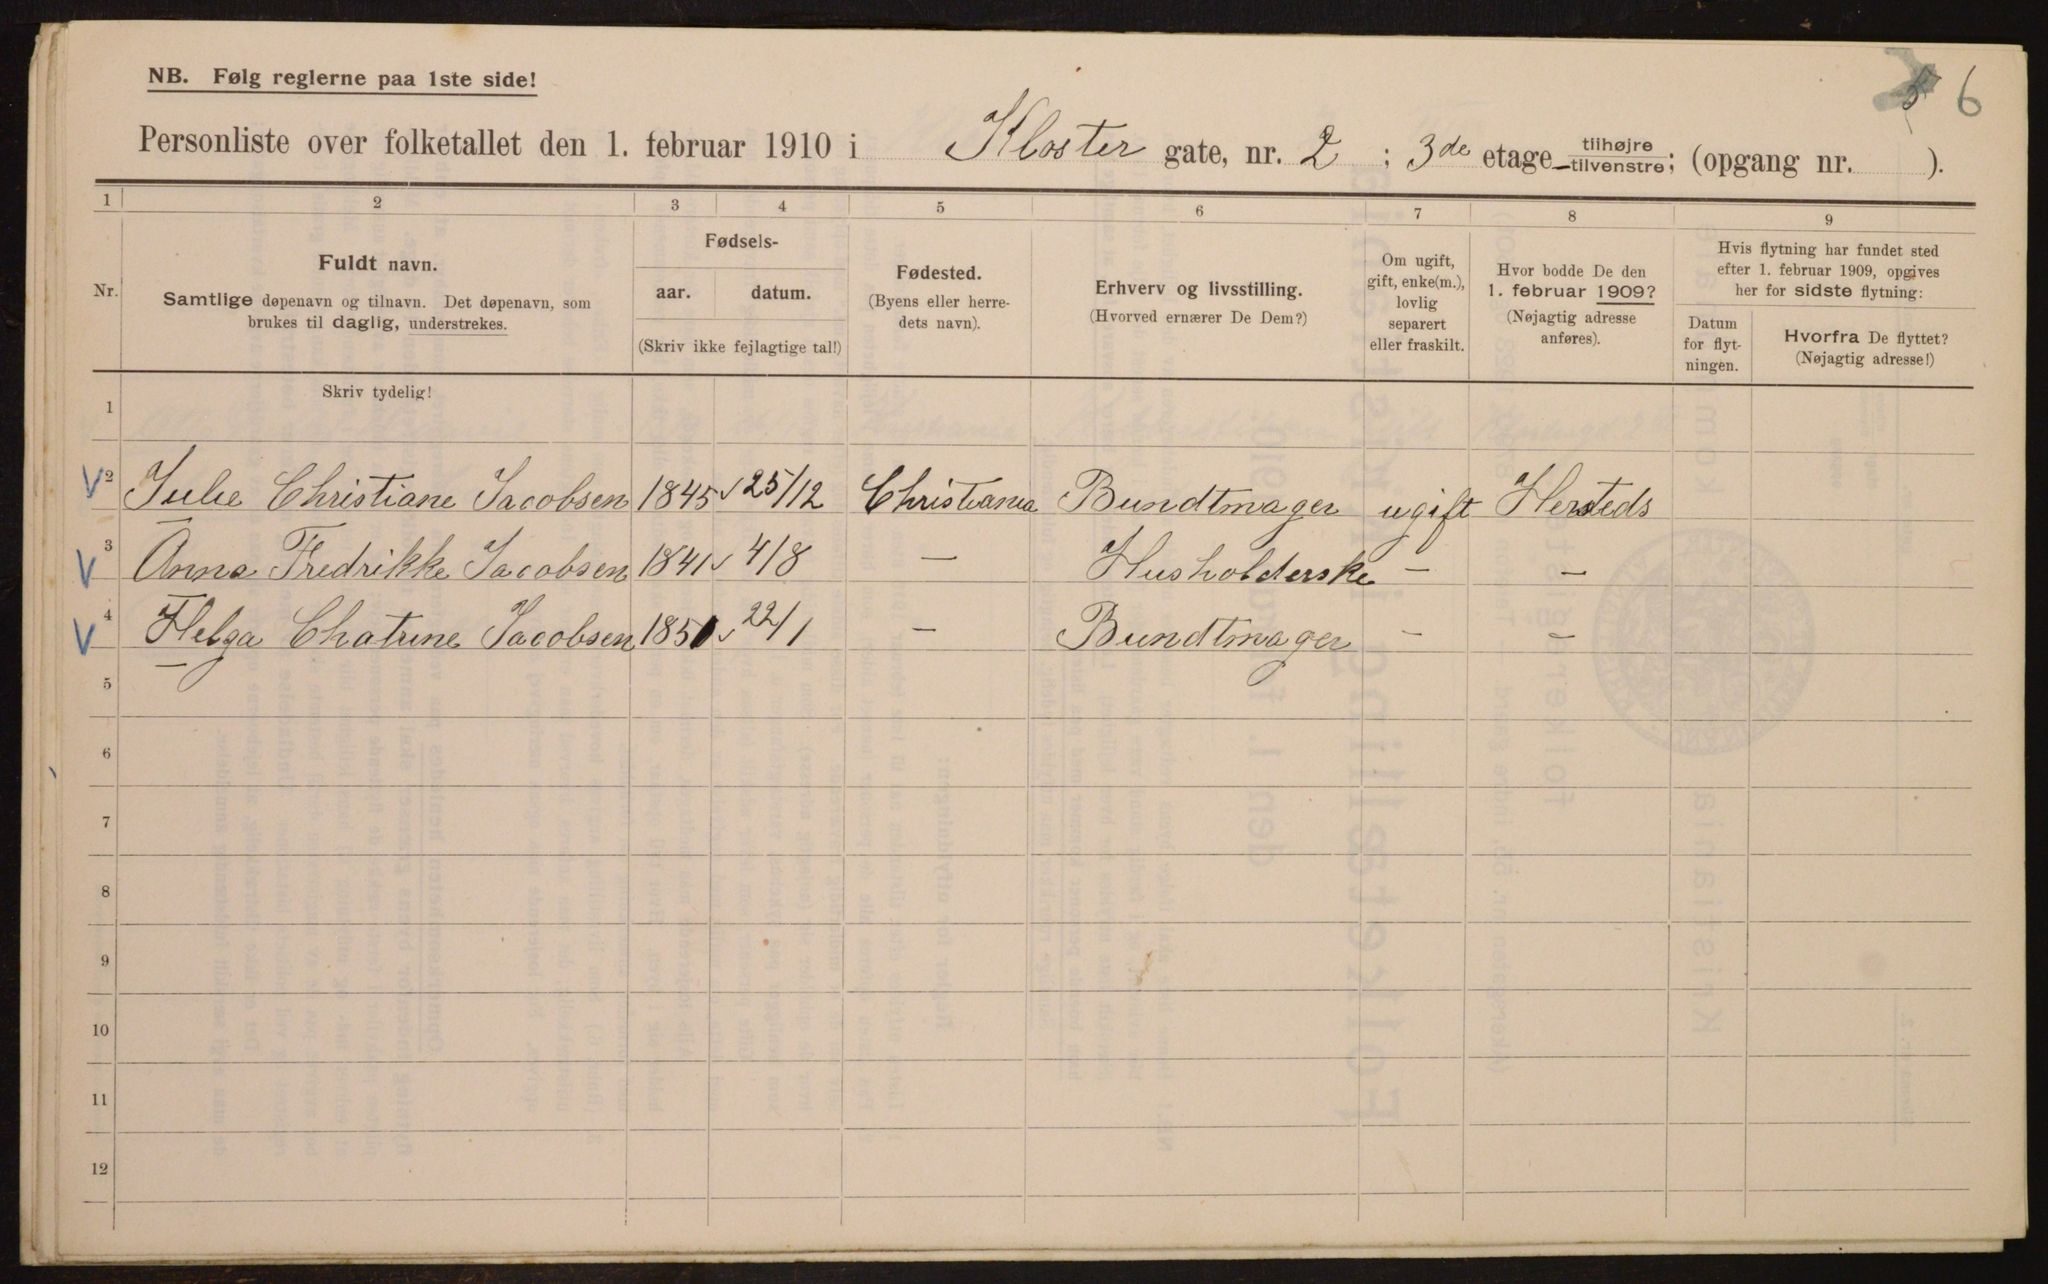 NB. Følg reglerne paa 1ste side!
6
Personliste over folketallet den 1. februar 1910 i Kloster gate, nr. 2 ; 3de etage tilhøjre tilvenstre; (opgang nr. ).
1 2 3 4 5 6 7 8 9
Nr.
Fuldt navn.
Samtlige døpenavn og tilnavn. Det døpenavn, som
brukes til daglig, understrekes.
Fødsels-
aar. datum.
(Skriv ikke fejlagtige tal!)
Fødested.
(Byens eller herre-
dets navn).
Erhverv og livsstilling.
(Hvorved ernærer De Dem?)
Om ugift,
gift, enke(m.),
lovlig
separert
eller fraskilt.
Hvor bodde De den
1. februar 1909?
(Nøjagtig adresse
anføres).
Hvis flytning har fundet sted
efter 1. februar 1909, opgives
her for sidste flytning:
Datum
for flyt-
ningen.
Hvorfra De flyttet?
(Nøjagtig adresse!)
Skriv tydelig!
1
2 Julie Christiane Jacobsen 1845 25/12 Christiania Bundtmager ugift Hersteds
3 Anna Fredrikke Jacobsen 1841 4/8 — Husholderske — —
4 Helga Chatrine Jacobsen 1851 22/1 — Bundtmager — —
5
6
7
8
9
10
11
12